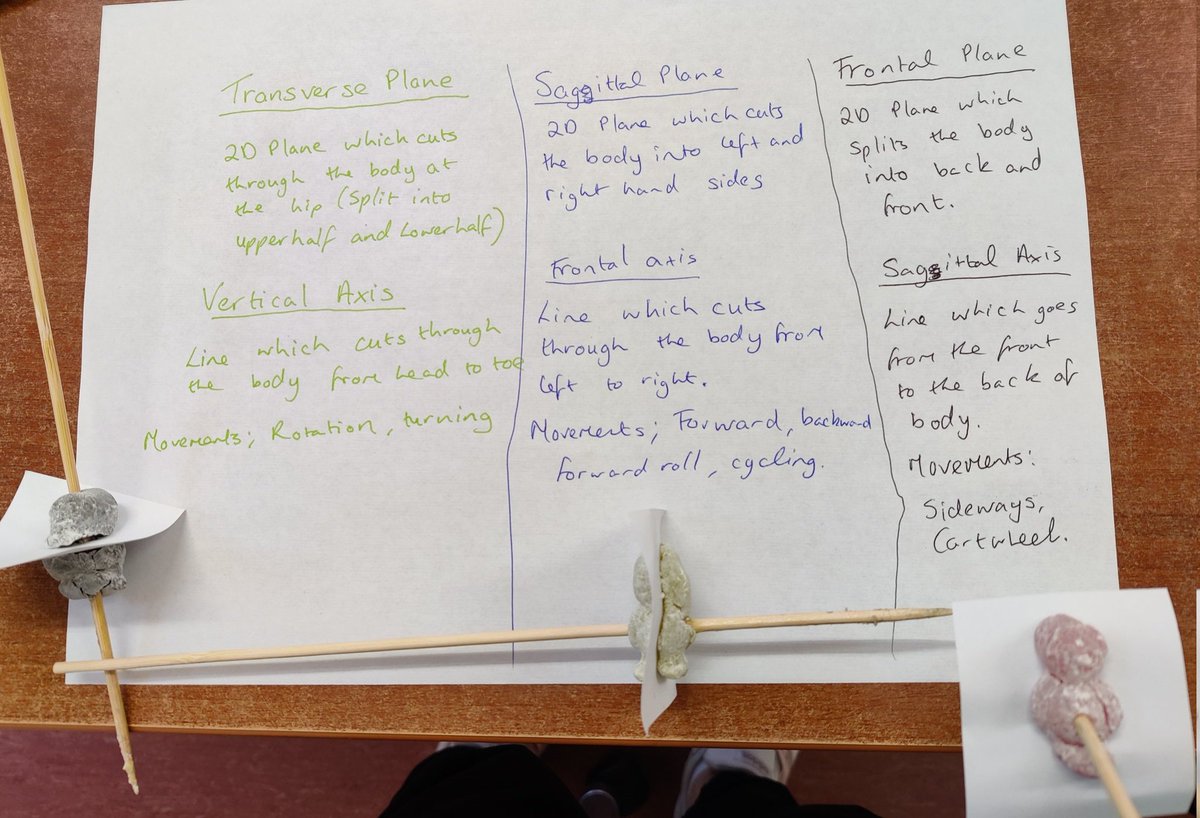 Transverse Plane
2D Plane which cuts
through the body at
the hip (Split into
upperhalf and Lowerhalf)
Vertical Axis
Line which cuts through
the body from head to toe
Movements; Rotation, turning
Saggittal Plane
2D Plane which cuts
the body into left and
right hand sides
Frontal axis
Line which cuts
through the body from
left to right.
Movements; Forward, backward
forward roll, cycling.
Frontal Plane
2D Plane which
splits the body
into back and
front.
Saggittal Axis
Line which goes
from the front
to the back of
body.
Movements:
Sideways,
Cartwheel.